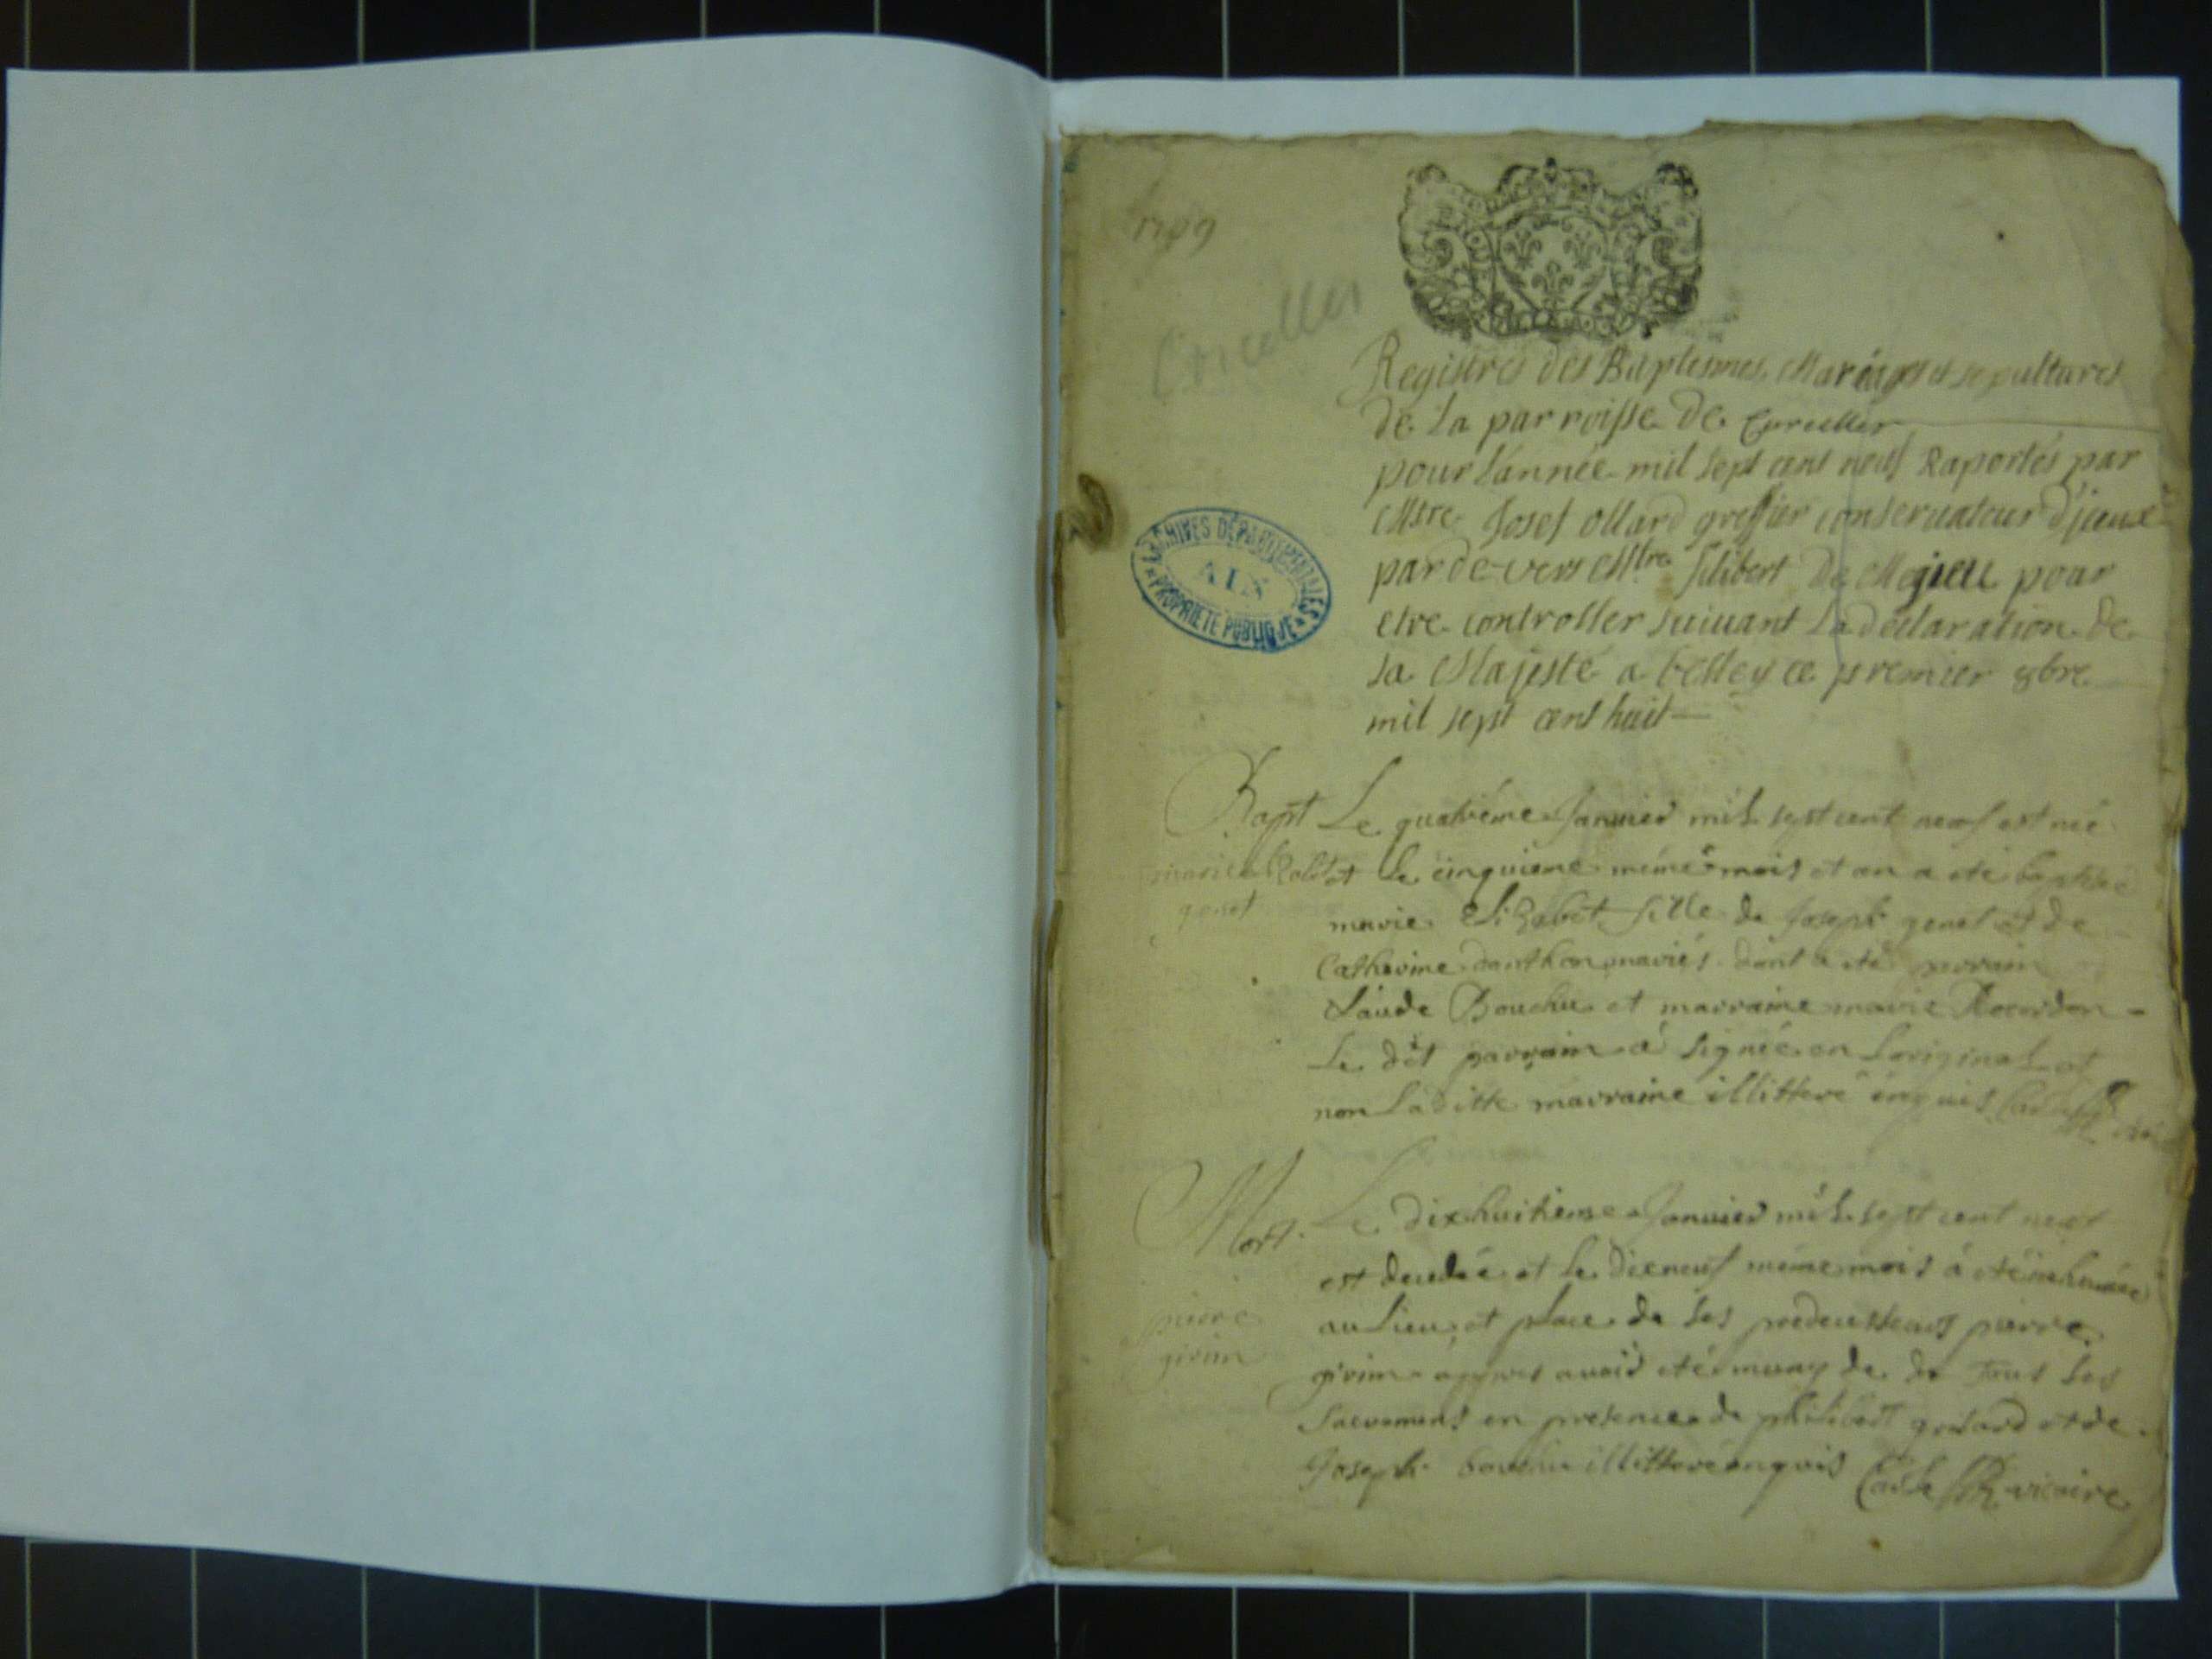 1709
Registres des Baptesmes, Mariages et sepultures
de La parroisse de Corcelles
pour L'année mil sept cent neuf Raportés par
Mtre Josef Ollard greffier conservateur d'jceux
par de vers Mtre filibert De Mejieu pour
etre controller suiuant La declaration de
sa Majesté a belley ce premier 8bre
mil sept cent huit
ARCHIVES DÉPARTEMENTALES
AIN
PROPRIETE PUBLIQUE
Bapt Le quatriéme Januier mil sept cent neuf est née
et le cinquieme méme mois et an a eté baptisée
marie Elizabet
genet
marie Elizabet fille de Joseph genet et de
Catherine danthon mariés dont a eté parrain
Claude Bouchu et marraine marie Recordon
Le dit parrain a signé en L'original et
non Laditte marraine illitteré enquis
Mort. Le dix huitieme Januier mil sept cent neuf
est decedée et le dixneuf méme mois á eté inhumée
pierre
girin
au Lieu et place de ses predecesseurs pierre
girin appres auoir eté muny de de Tous les
Sacremens en presence de philibert grilard et de
Joseph bouchu illitteré enquis vicaire